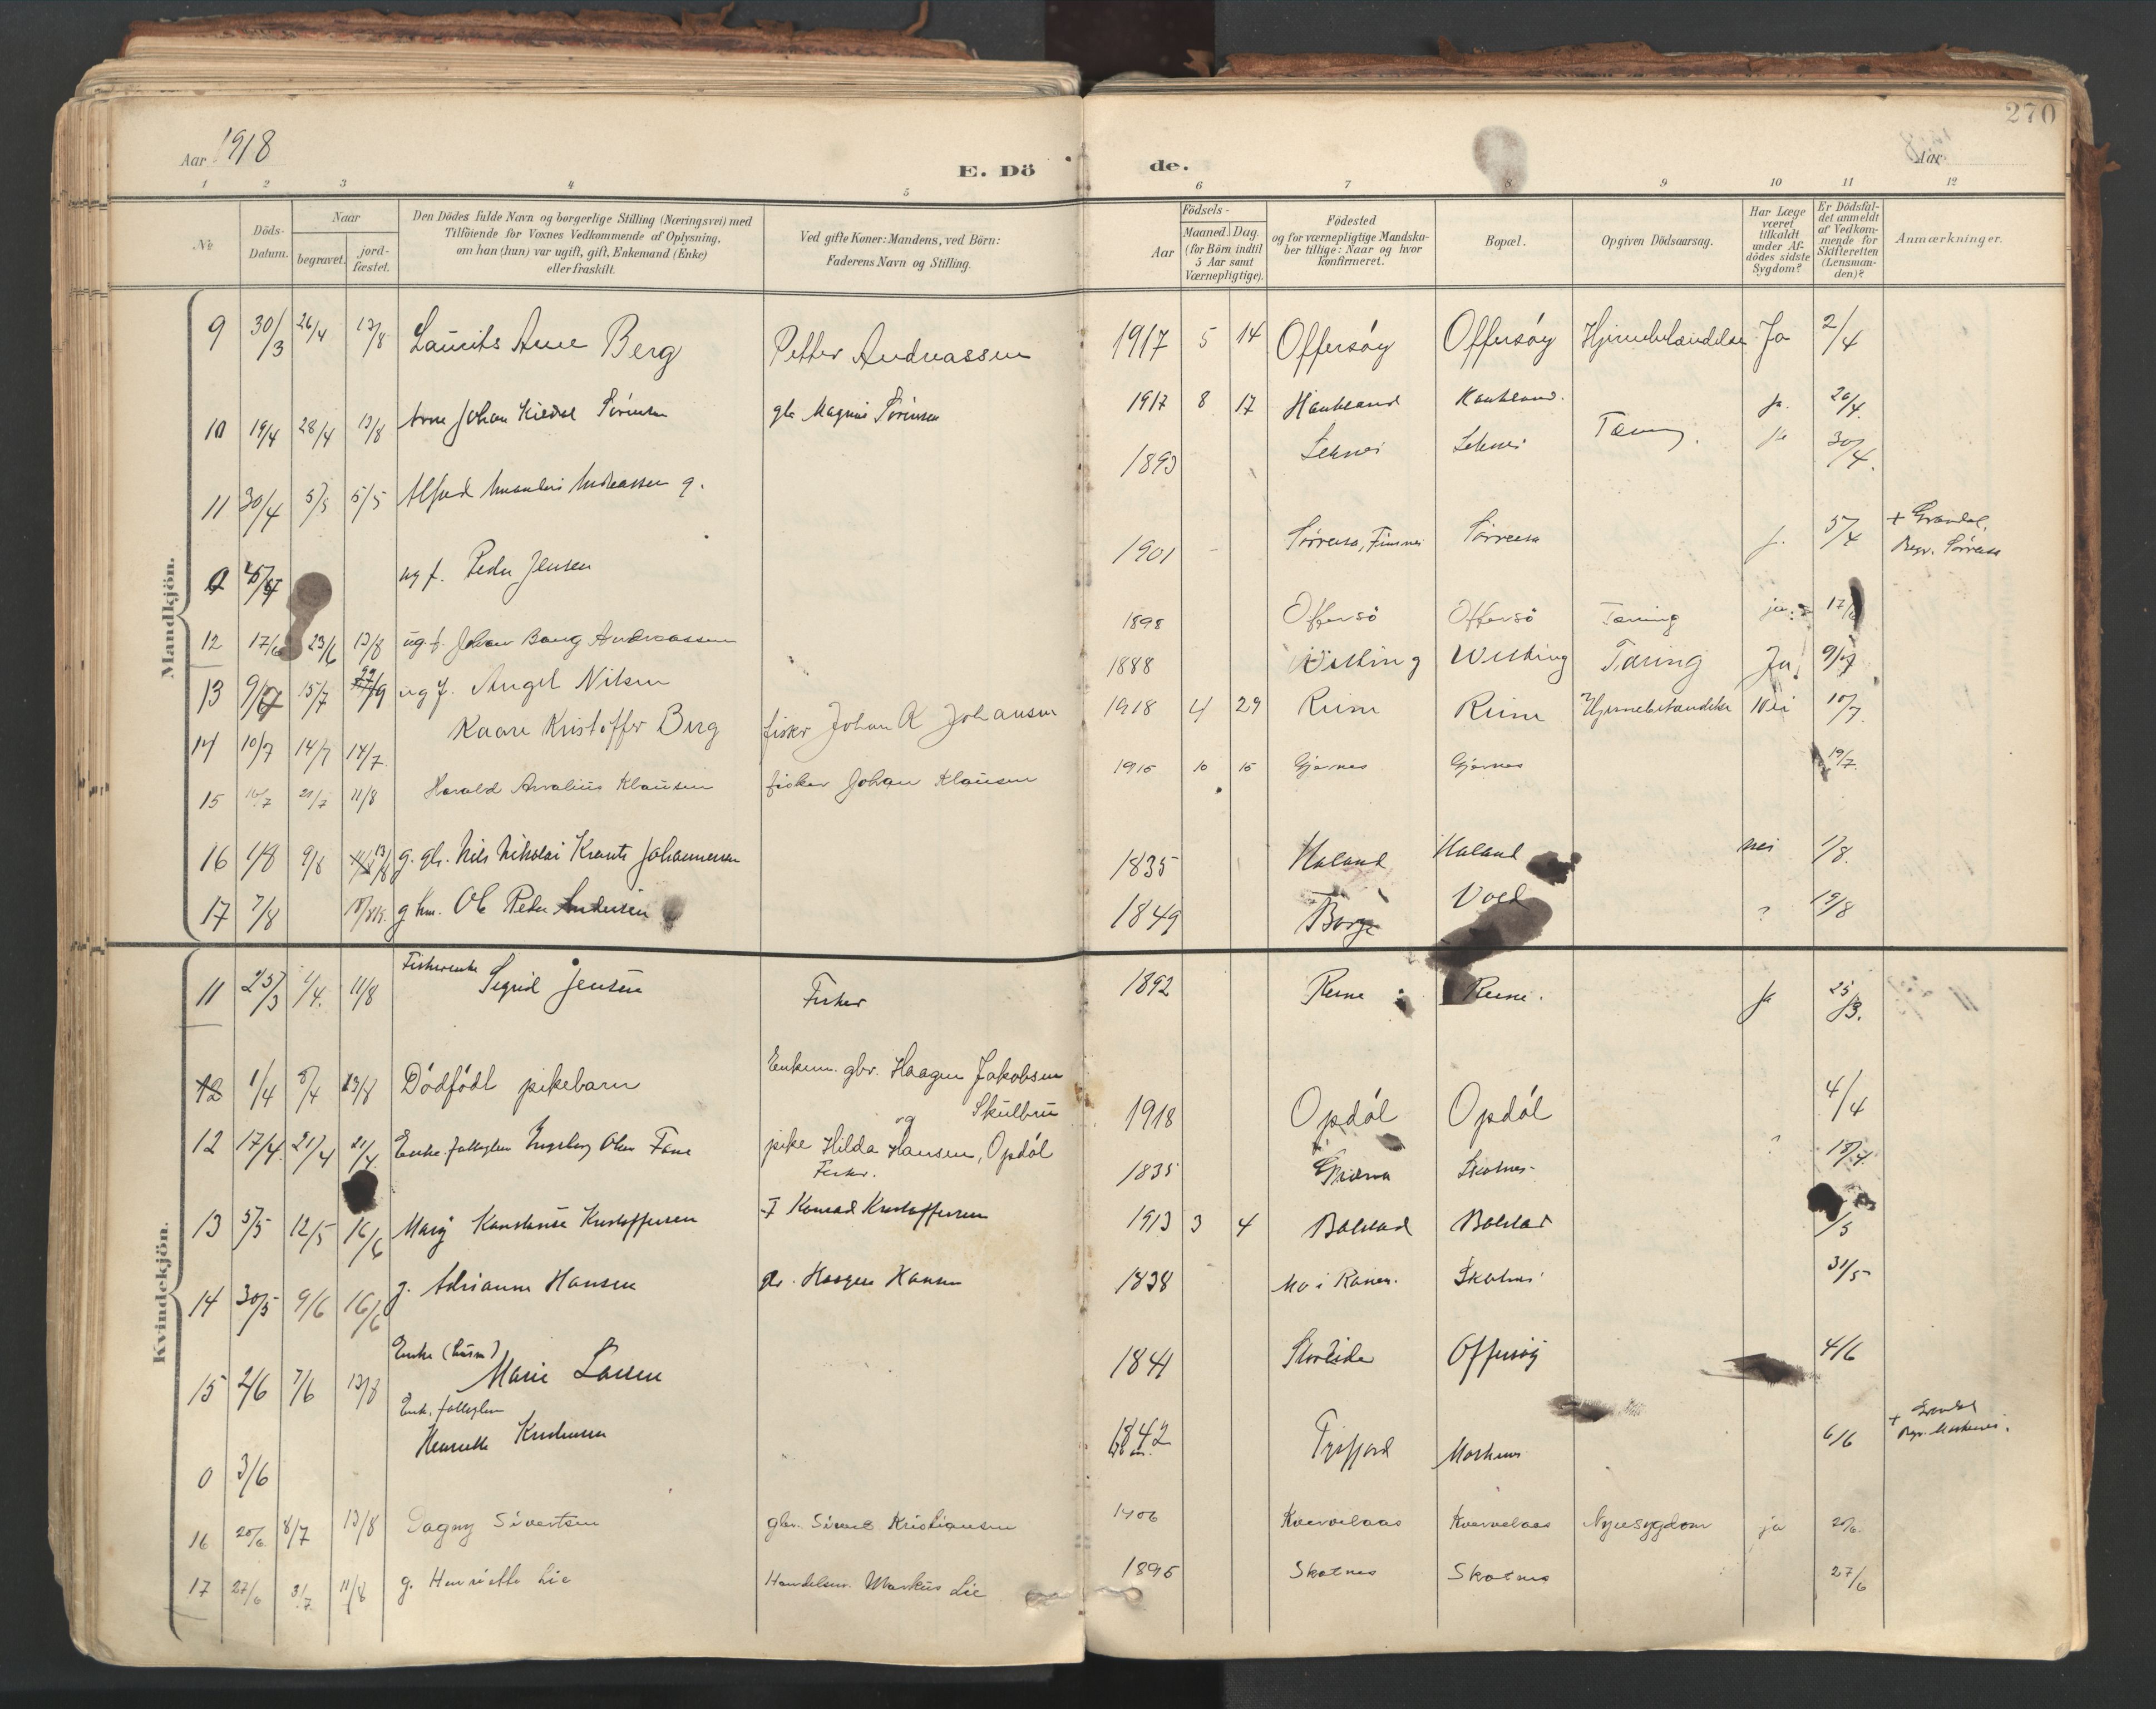 270
Aar 1918
E. Dö de.
Aar
1 2 3 4 5 6 7 8 9 10 11 12
No
Döds-Datum.
Naar
begravet. jord-fæstet.
Den Dödes fulde Navn og borgerlige Stilling (Næringsvei) med
Tilföiende for Voxnes Vedkommende af Oplysning,
om han (hun) var ugift, gift, Enkemand (Enke)
eller fraskilt.
Ved gifte Koner: Mandens, ved Börn:
Faderens Navn og Stilling.
Födsels-
Aar
Maaned. Dag.
(for Börn indtil
5 Aar samt
Værnepligtige).
Födested
og for værnepligtige Mandska-
ber tillige: Naar og hvor
konfirmeret.
Bopæl.
Opgiven Dödsaarsag.
Har Læge
været
tilkaldt
under Af-
dödes sidste
Sygdom?
Er Dödsfal-
det anmeldt
af Vedkom-
mende for
Skifteretten
(Lensman-
den)?
Anmærkninger.
Mandkjön.
9 30/3 26/4 13/8 Laurits Arne Berg Petter Andreassen 1917 5 14 Offersöy Offersöy Hjernebetændelse Ja 2/4
10 19/4 28/4 13/8 Arne Johan Sörensen gbr Magnus Sörensen 1917 8 17 Haukland Haukland. ja. 20/4.
11 30/4 5/5 5/5 Alfred Andreassen g. 1893 Leknes Leknes Tæring. ja 30/4.
ug f. Peder Jensen 1901 Sörreisa, Finnes Sörreisa j. 5/4 + Gravdal, Begr. Sörreisa
12 17/6 23/6 13/8 ug f. Johan Bang Andreassen 1898 Offersö Offersö Tæring ja 17/6
13 9/7 15/7 22/9 ug f. Angel Nilsen 1888 Utting Utting Tæring Ja 9/7
14 10/7 14/7 14/7 Kaare Kristoffer Berg fisker Johan A Johansen 1918 4 29 Reine Reine Hjernebetændelse Nei 10/7.
15 16/7 21/7 11/8 Harald Arvalius Klausen fisker Johan Klausen 1915 10 15 Gjernes Gjernes 19/7.
16 1/8 9/8 13/8 g. gbr. Nils Nikolai Krantz Johannessen 1835 Haland Haland nei 1/8.
17 7/8 g hm. Ole Peder Andersen 1849 Borge Vold ? 19/8
Kvindekjön.
11 25/3 1/4. 11/8 Fiskerenke Sigrid Jensen Fisker 1892 Reine Reine. Ja 25/3.
12 1/4 5/4 13/8 Dödfödt pikebarn Enkem. gbr. Haagen Jakobsen Skulbru og pike Hilda Hansen, Opdöl 1918 Opdöl Opdöl 4/4
12 17/4. 21/4 21/4. Enke fattiglem Ingeborg Olsen Fisker. 1835 Skotnes ? 18/4.
13 5/5 12/5 16/6 Mary Konstanse Kristoffersen F Konrad Kristoffersen 1913 3 4 Balstad Balstad /5
14 30/5 9/6 16/6 g. Adrianna Hansen gbr. Haagen Hansen 1838 Mo i Ranen. Skotnes 31/5
15 2/6 7/6 13/8 Enke (husm) Marie Larsen 1841 Storeide Offersöy 4/6
0 3/6 Enk. fattiglem Henrikke Kristensen 1842 Tysfjord Mortsund 6/6 + Gravdal
16 20/6. 8/7 13/8 Dagny Sivertsen gbr. Sivert Kristiansen 1906 Kvervelaas Kvervelaas Nyresygdom ja 20/6.
17 27/6 3/7. 11/8 g. Henriette Lie Handelsm. Markus Lie 1895 Skotnes Skotnes 27/6